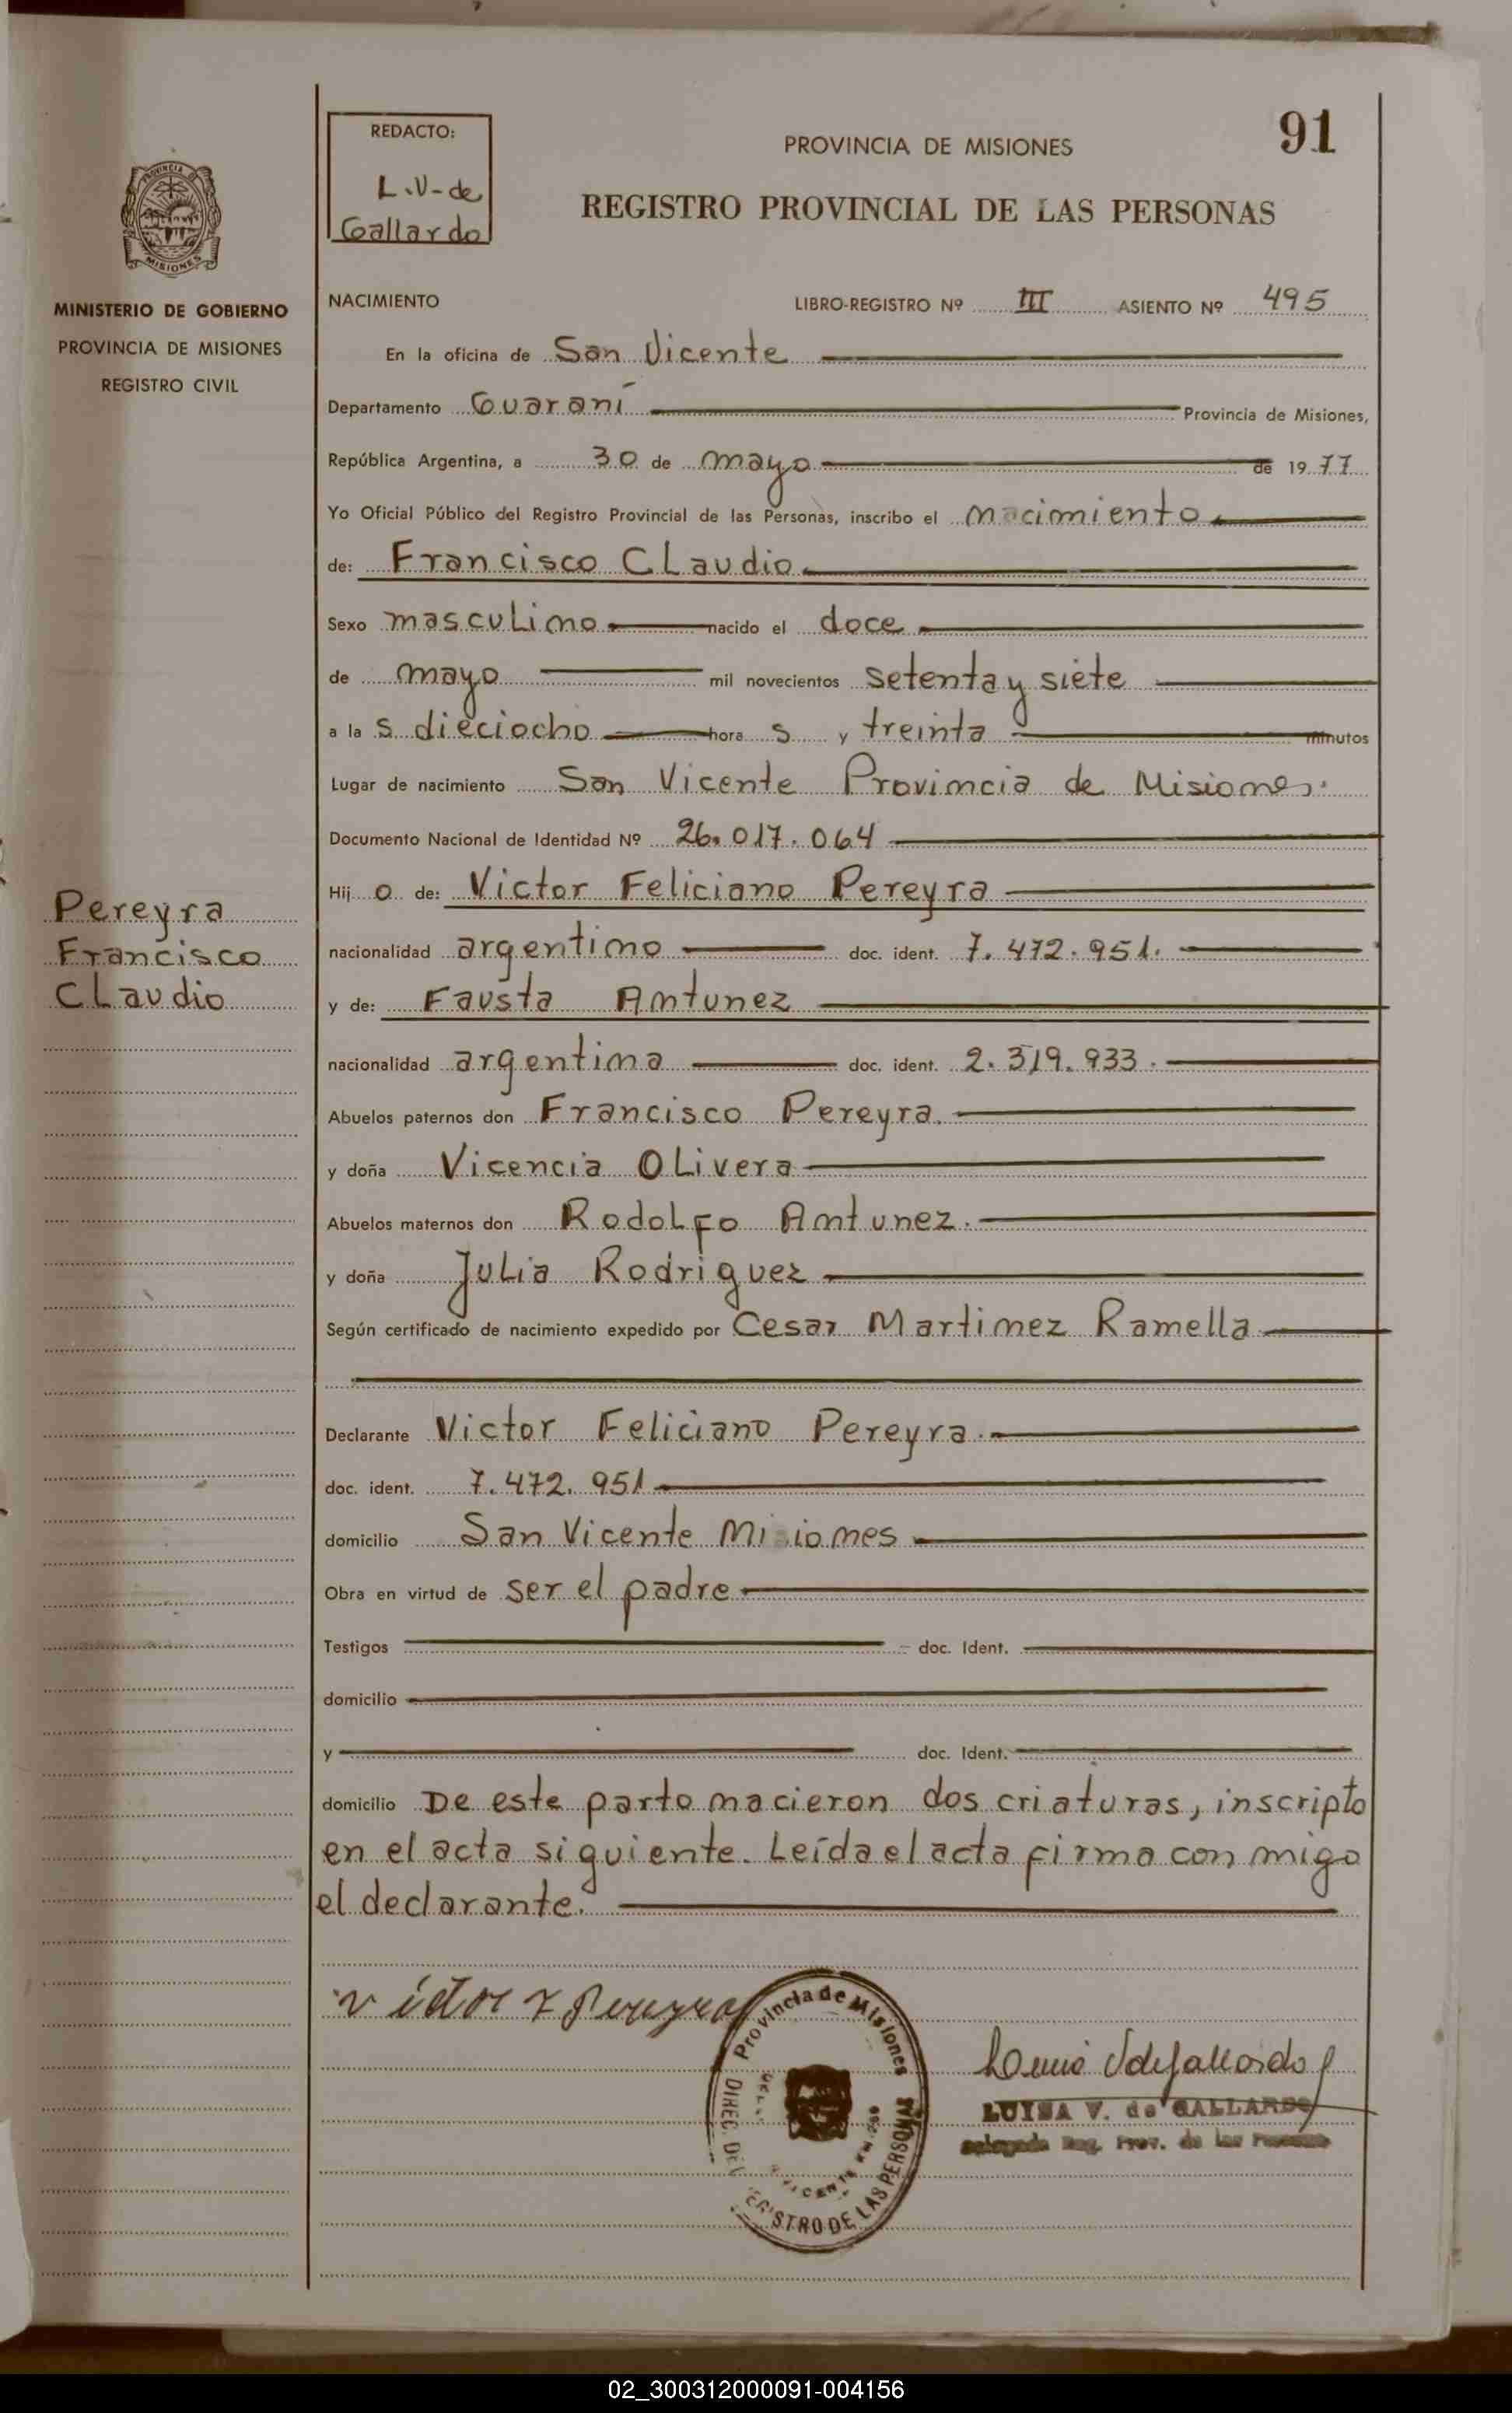 REDACTO:
L.V-de
Gallardo
PROVINCIA DE MISIONES
91
REGISTRO PROVINCIAL DE LAS PERSONAS
PROVINCIA DE
MISIONES
MINISTERIO DE GOBIERNO
PROVINCIA DE MISIONES
REGISTRO CIVIL
NACIMIENTO LIBRO-REGISTRO Nº III ASIENTO Nº 495
En la oficina de San Vicente
Departamento Guaraní Provincia de Misiones,
República Argentina, a 30 de mayo de 1977
Yo Oficial Público del Registro Provincial de las Personas, inscribo el nacimiento
de: Francisco Claudio
Sexo masculino nacido el doce
de mayo mil novecientos setenta y siete
a las dieciocho horas y treinta minutos
Lugar de nacimiento San Vicente Provincia de Misiones.
Documento Nacional de Identidad Nº 26.017.064
Hijo de: Victor Feliciano Pereyra
Pereyra
Francisco
Claudio
nacionalidad argentino doc. ident. 7.472.951.
y de: Fausta Antunez
nacionalidad argentina doc. ident. 2.319.933.
Abuelos paternos don Francisco Pereyra.
y doña Vicencia Olivera
Abuelos maternos don Rodolfo Antunez.
y doña Julia Rodriguez
Según certificado de nacimiento expedido por Cesar Martinez Ramella
Declarante Victor Feliciano Pereyra.
doc. ident. 7.472.951
domicilio San Vicente Misiones
Obra en virtud de ser el padre
Testigos doc. Ident.
domicilio
y doc. Ident.
domicilio De este parto nacieron dos criaturas, inscripto
en el acta siguiente. Leída el acta firma con migo
el declarante.
Victor F Pereyra
Provincia de Misiones
DIREC. DEL REGISTRO DE LAS PERSONAS
Luisa V de Gallardo
LUISA V. de GALLARDO
Delegada Reg. Prov. de las Personas
02_300312000091-004156